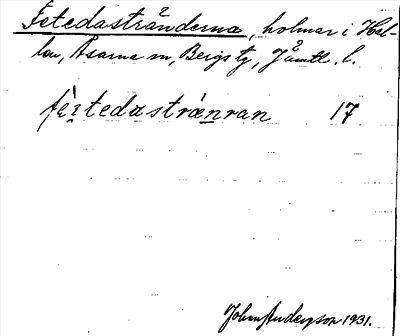 Fetedastränderna, holmar i Hal-
len, Åsarne sn, Bergs tg, Jämtl. l.
fèɪtedastrǽnran 17
John Anderson 1931.